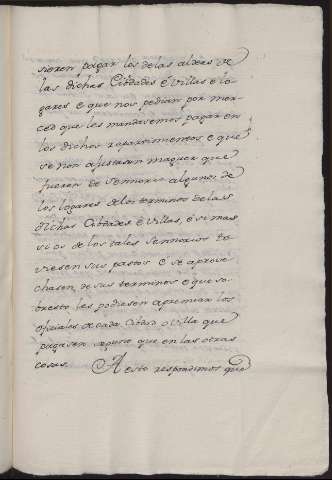 sieren pagar los de las aldeas de
las dichas Cibdades é Villas é lo
gares é que nos pedian por mer
ced que les mandasemos pagar en
los dichos repartimentos é que
se non escusasen maguer que
fueren de Sennorio algunos de
los logares de los terminos de las
dichas Cibdades é Villas, é si mas
si os de los tales Sennorios to
viesen sus pastos é se aprove
chasen de sus terminos é que so
bresto les podiesen apremiar los
oficiales de cada Cibdad o Villa que
pagasen aquise que en las otras
cosas. A esto respondimos que